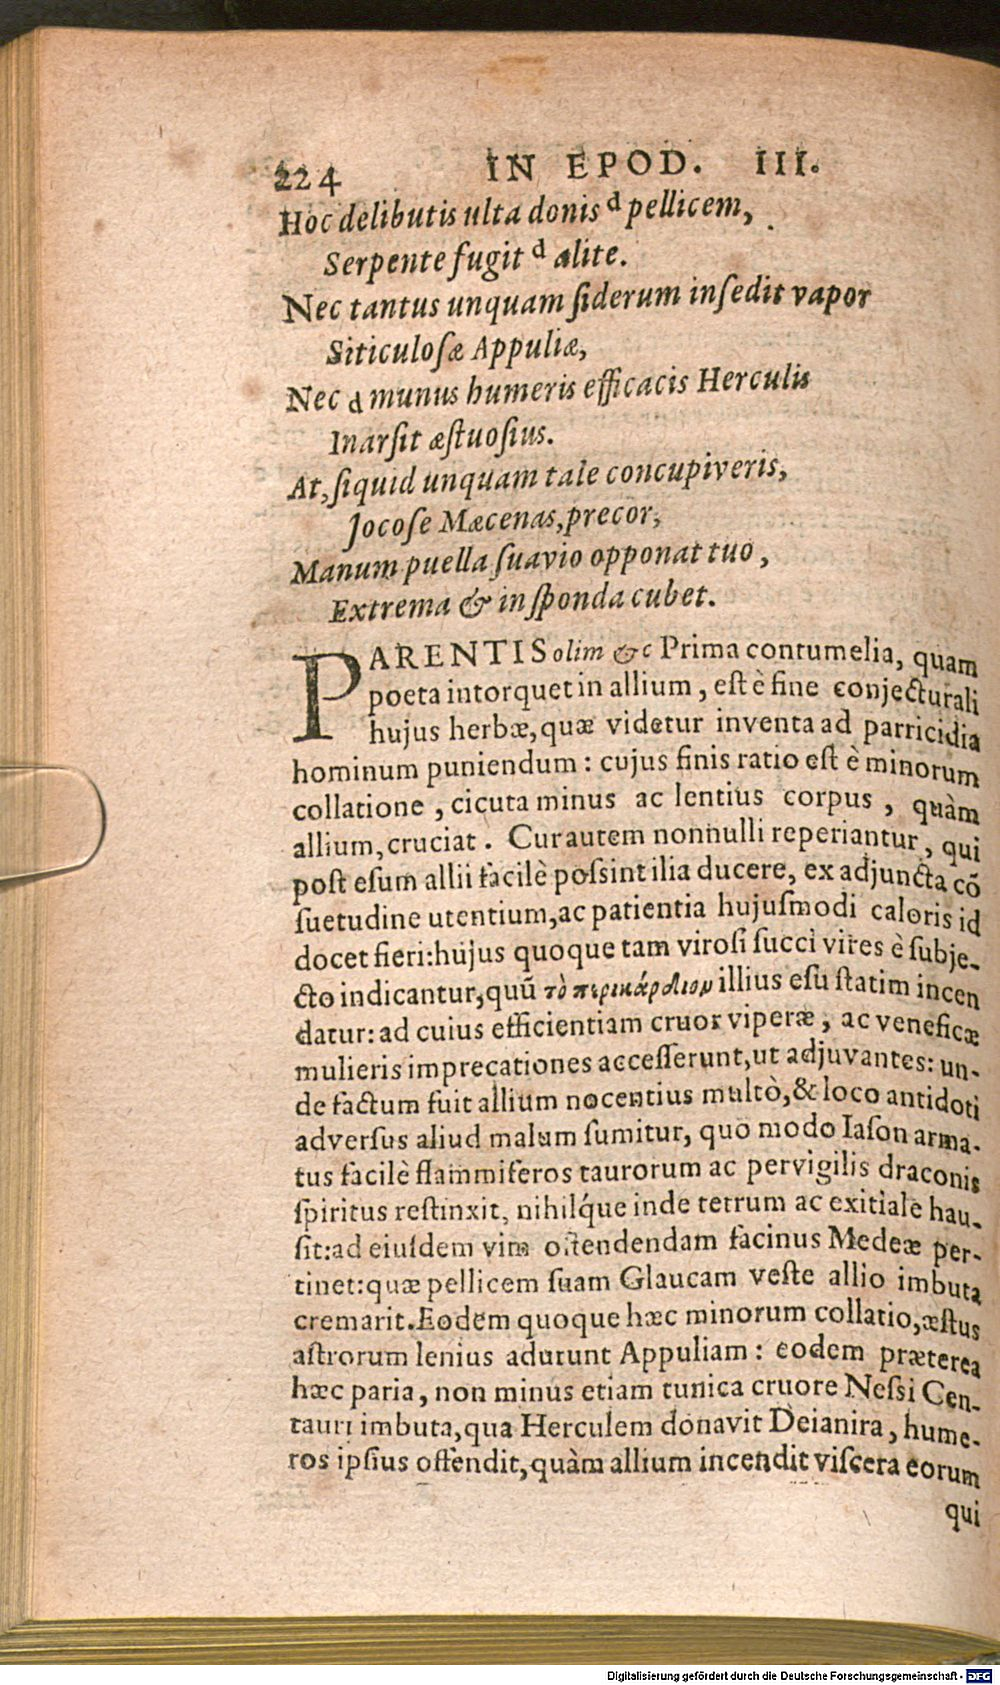 224 IN EPOD. III.
Hoc delibutis ulta donis d pellicem,
Serpente fugit d alite.
Nec tantus unquam ſiderum inſedit vapor
Siticuloſæ Appuliæ,
Nec d munus humeris efficacis Herculis
Inarſit æſtuoſius.
At, ſiquid unquam tale concupiveris,
Jocoſe Mæcenas, precor,
Manum puella ſuavio opponat tuo,
Extrema & in ſponda cubet.
PARENTIS olim &c Prima contumelia, quam
poeta intorquet in allium, eſt è fine conjecturali
hujus herbæ, quæ videtur inventa ad parricidia
hominum puniendum: cujus finis ratio eſt è minorum
collatione, cicuta minus ac lentius corpus, quàm
allium, cruciat. Cur autem nonnulli reperiantur, qui
poſt eſum allii facilè poſsint ilia ducere, ex adjuncta cō
ſuetudine utentium, ac patientia hujuſmodi caloris id
docet fieri: hujus quoque tam viroſi ſucci vires è ſubje-
cto indicantur, quū τὸ περικάρδιον illius eſu ſtatim incen
datur: ad cuius efficientiam cruor viperæ, ac veneficæ
mulieris imprecationes acceſſerunt, ut adjuvantes: un-
de factum fuit allium nocentius multò, & loco antidoti
adverſus aliud malum ſumitur, quo modo Iaſon arma-
tus facilè flammiferos taurorum ac pervigilis draconis
ſpiritus reſtinxit, nihilq́ue inde tetrum ac exitiale hau-
ſit: ad eiuſdem vim oſtendendam facinus Medeæ per-
tinet: quæ pellicem ſuam Glaucam veſte allio imbuta
cremarit. Eodem quoque hæc minorum collatio, æſtus
aſtrorum lenius adurunt Appuliam: eodem præterea
hæc paria, non minus etiam tunica cruore Neſsi Cen-
tauri imbuta, qua Herculem donavit Deianira, hume-
ros ipſius oſtendit, quàm allium incendit viſcera eorum
qui
Digitalisierung gefördert durch die Deutsche Forschungsgemeinschaft - DFG